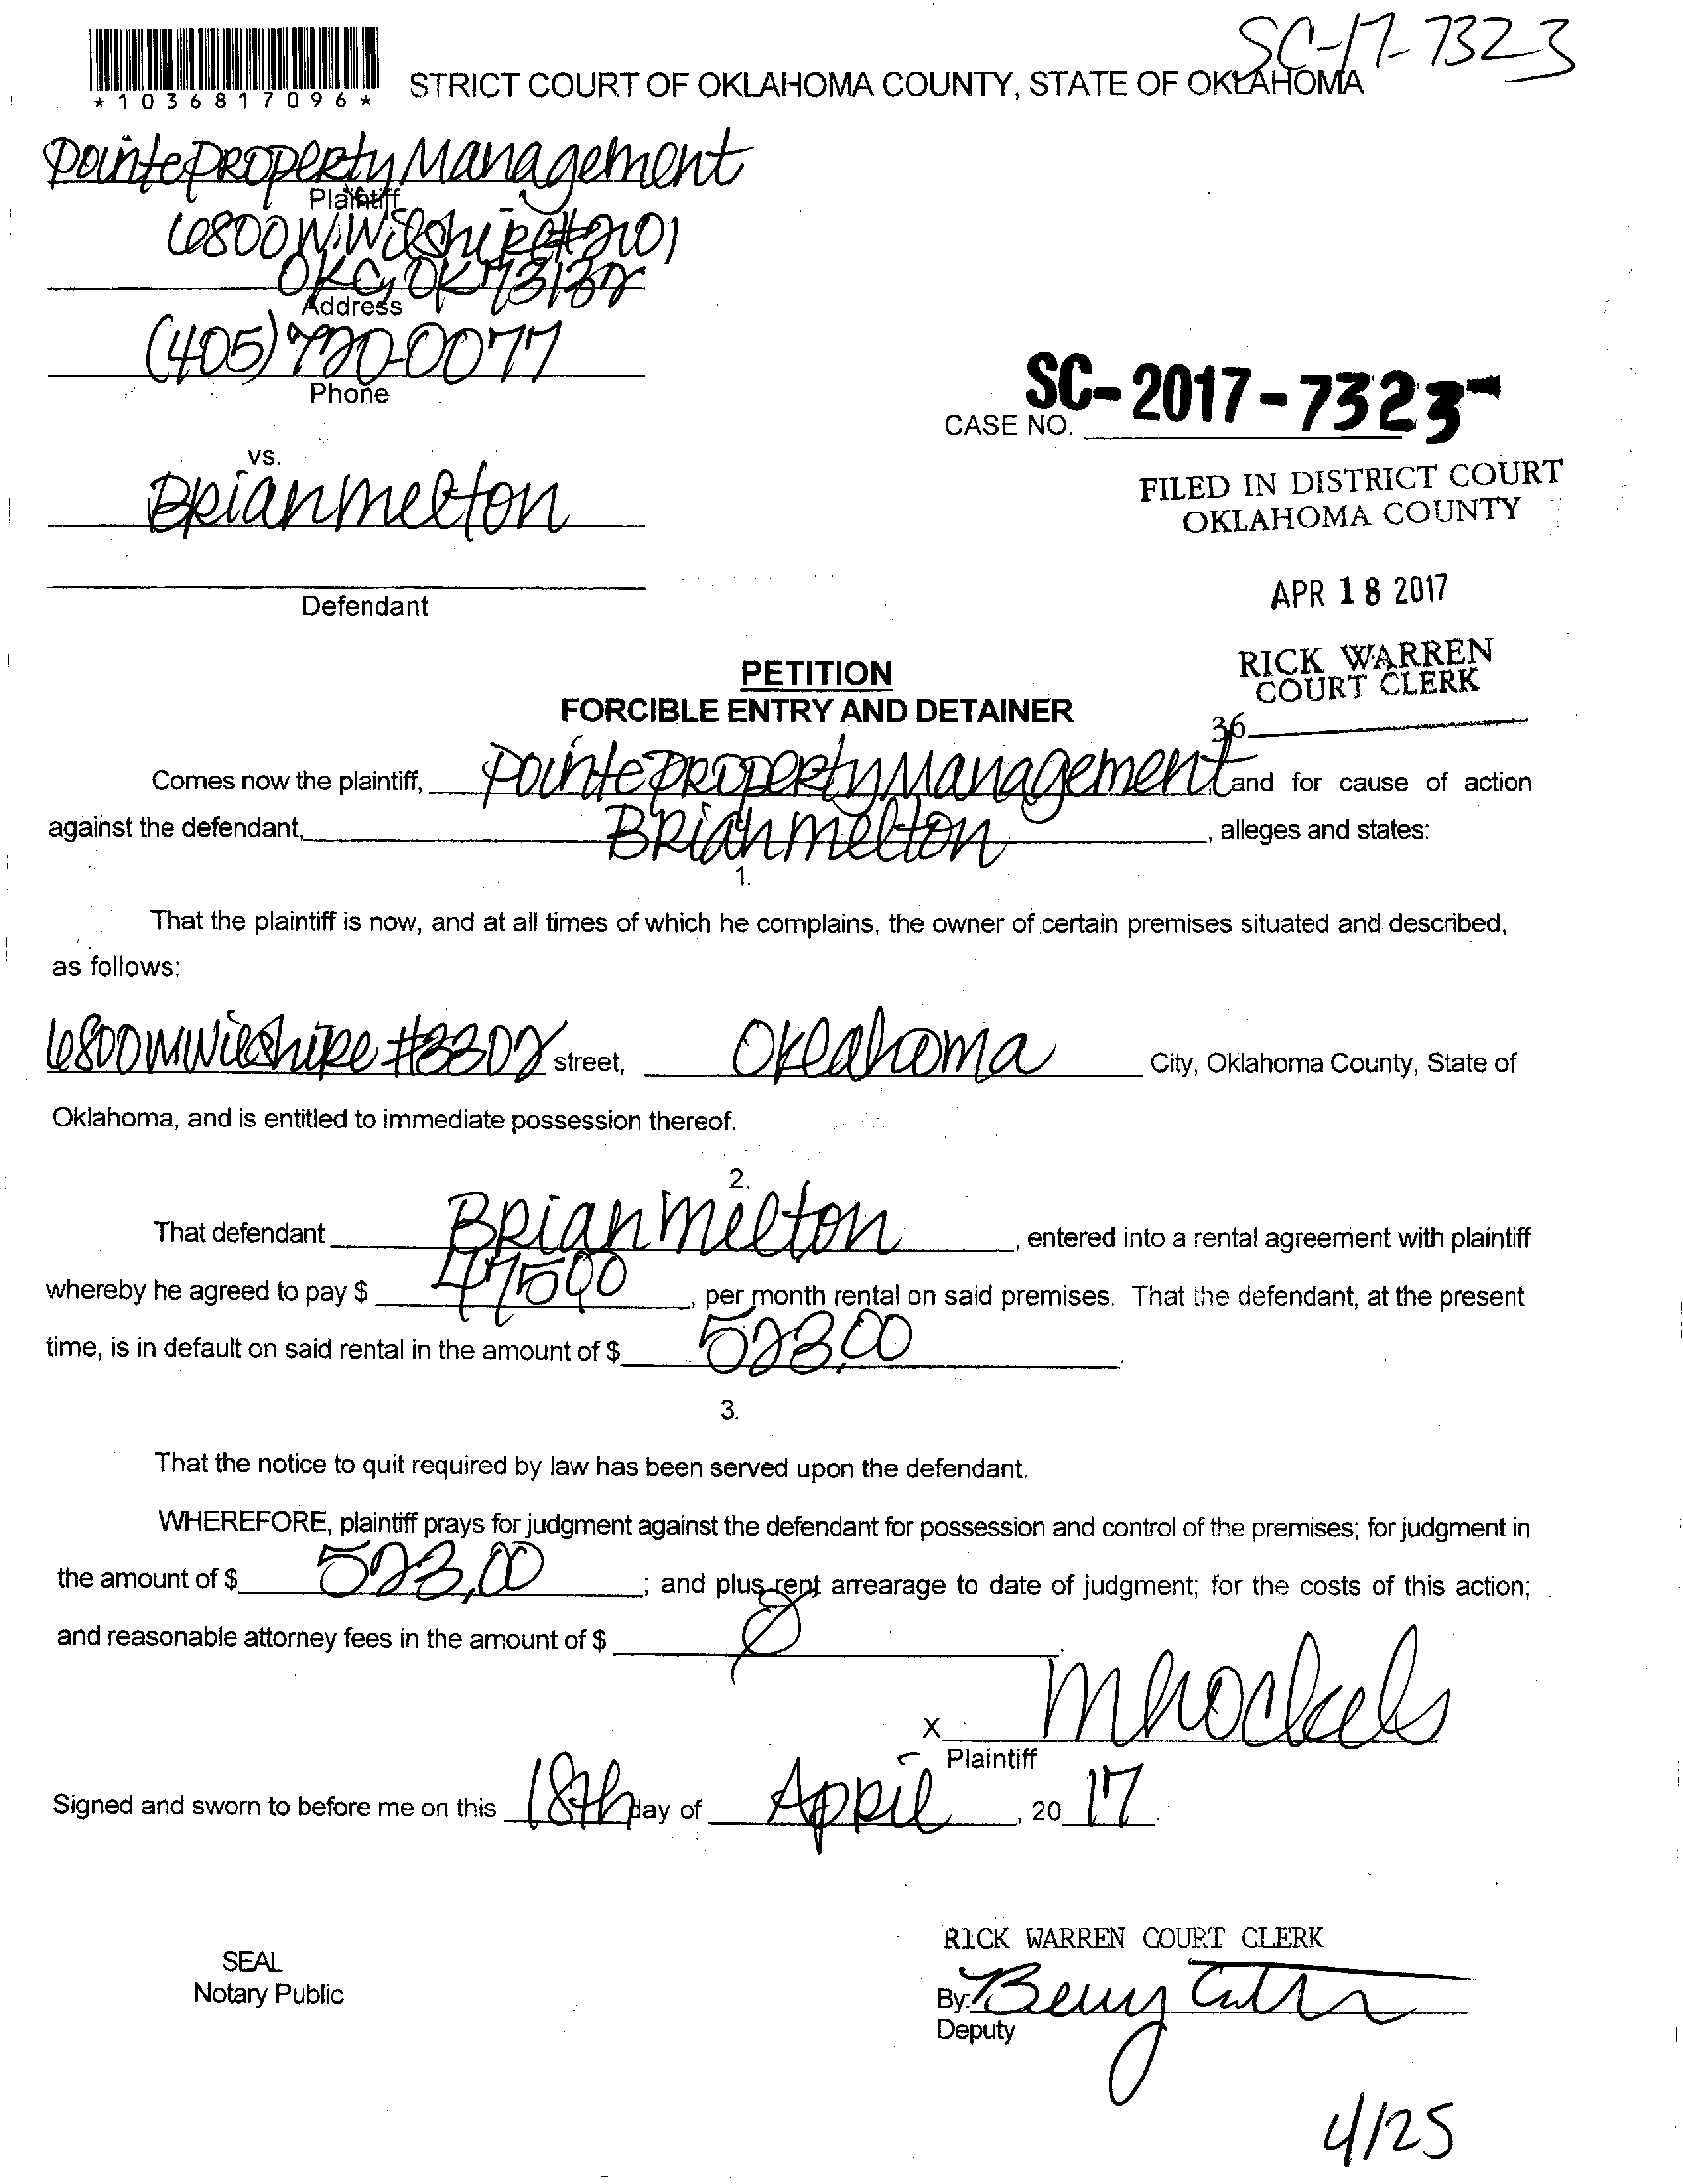 SC-17-7323
*1036817096*
STRICT COURT OF OKLAHOMA COUNTY, STATE OF OKLAHOMA
Pointe Property Management
Plaintiff
6800 W. Wilshire #2101
OKC, OK 73132
Address
(405) 720-0077
Phone
SC-2017-7323
CASE NO.
vs.
Brian Melton
FILED IN DISTRICT COURT
OKLAHOMA COUNTY
Defendant
APR 18 2017
RICK WARREN
COURT CLERK
36
PETITION
FORCIBLE ENTRY AND DETAINER
Comes now the plaintiff, Pointe Property Management and for cause of action
against the defendant, Brian Melton, alleges and states:
1.
That the plaintiff is now, and at all times of which he complains, the owner of certain premises situated and described,
as follows:
6800 W Wilshire #3302 street, Oklahoma City, Oklahoma County, State of
Oklahoma, and is entitled to immediate possession thereof.
2.
That defendant Brian Melton, entered into a rental agreement with plaintiff
whereby he agreed to pay $ 47500, per month rental on said premises. That the defendant, at the present
time, is in default on said rental in the amount of $ 523.00
3.
That the notice to quit required by law has been served upon the defendant.
WHEREFORE, plaintiff prays for judgment against the defendant for possession and control of the premises; for judgment in
the amount of $ 523.00; and plus rent arrearage to date of judgment; for the costs of this action;
and reasonable attorney fees in the amount of $
X
Plaintiff
Signed and sworn to before me on this 18th day of April, 20 17.
RICK WARREN COURT CLERK
SEAL
Notary Public
By:
Deputy
4/25